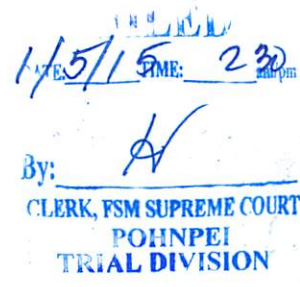 FILED
DATE: 1/5/15 TIME: 2 30 am/pm
By:
CLERK, FSM SUPREME COURT
POHNPEI
TRIAL DIVISION